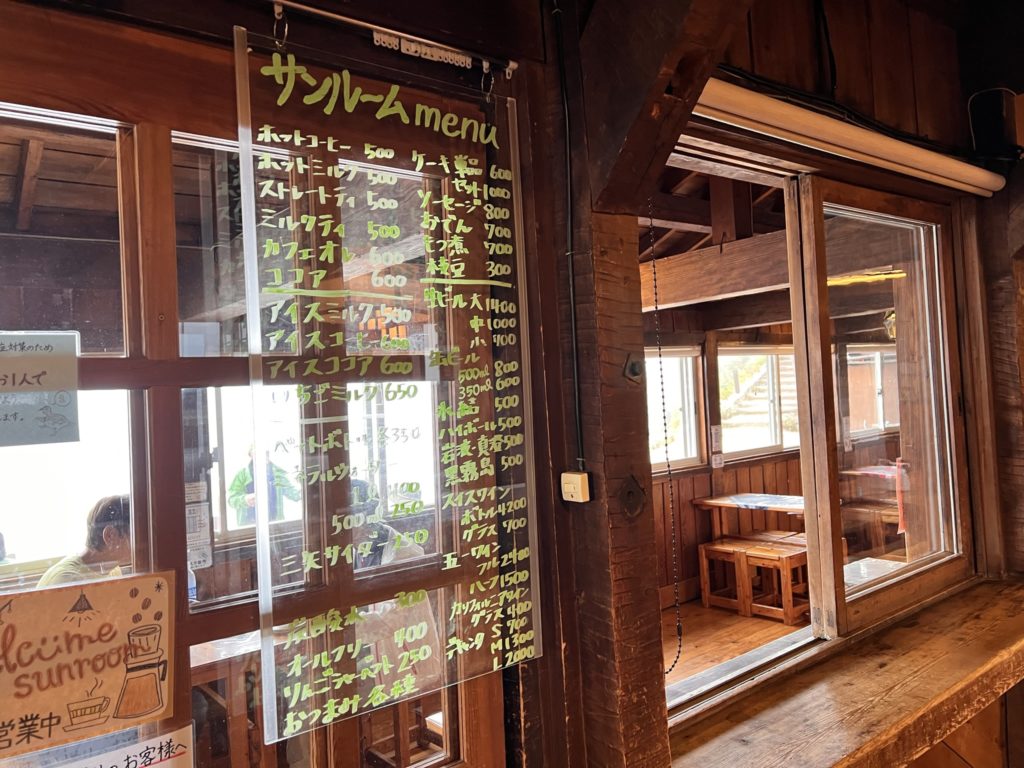 サンルームmenu
ホットコーヒー 500
ホットミルク 500
ストレートティ 500
ミルクティ 500
カフェオレ 600
ココア 600
アイスミルク 500
アイスコーヒー 600
アイスココア 600
いちごミルク 650
ペットボトル 各350
ミネラルウォーター
1L 400
500ml 250
三矢サイダー 250
炭酸水 300
オールフリー 400
りんごシャーベット 250
おつまみ各種
ケーキ単品 600
セット1000
ソーセージ 800
おでん 700
もつ煮 700
枝豆 300
生ビール 大1400
中1000
小 400
缶ビール
500ml 800
350ml 600
氷結 500
ハイボール 500
黒霧島 500
スイスワイン
ボトル4200
グラス 700
五一ワイン
フル 2400
ハーフ1500
カリフォルニアワイン
グラス 400
S 700
M 1300
L 2000
対策のため
お1人で
ます。
welcome
sunroom
営業中
お客様へ